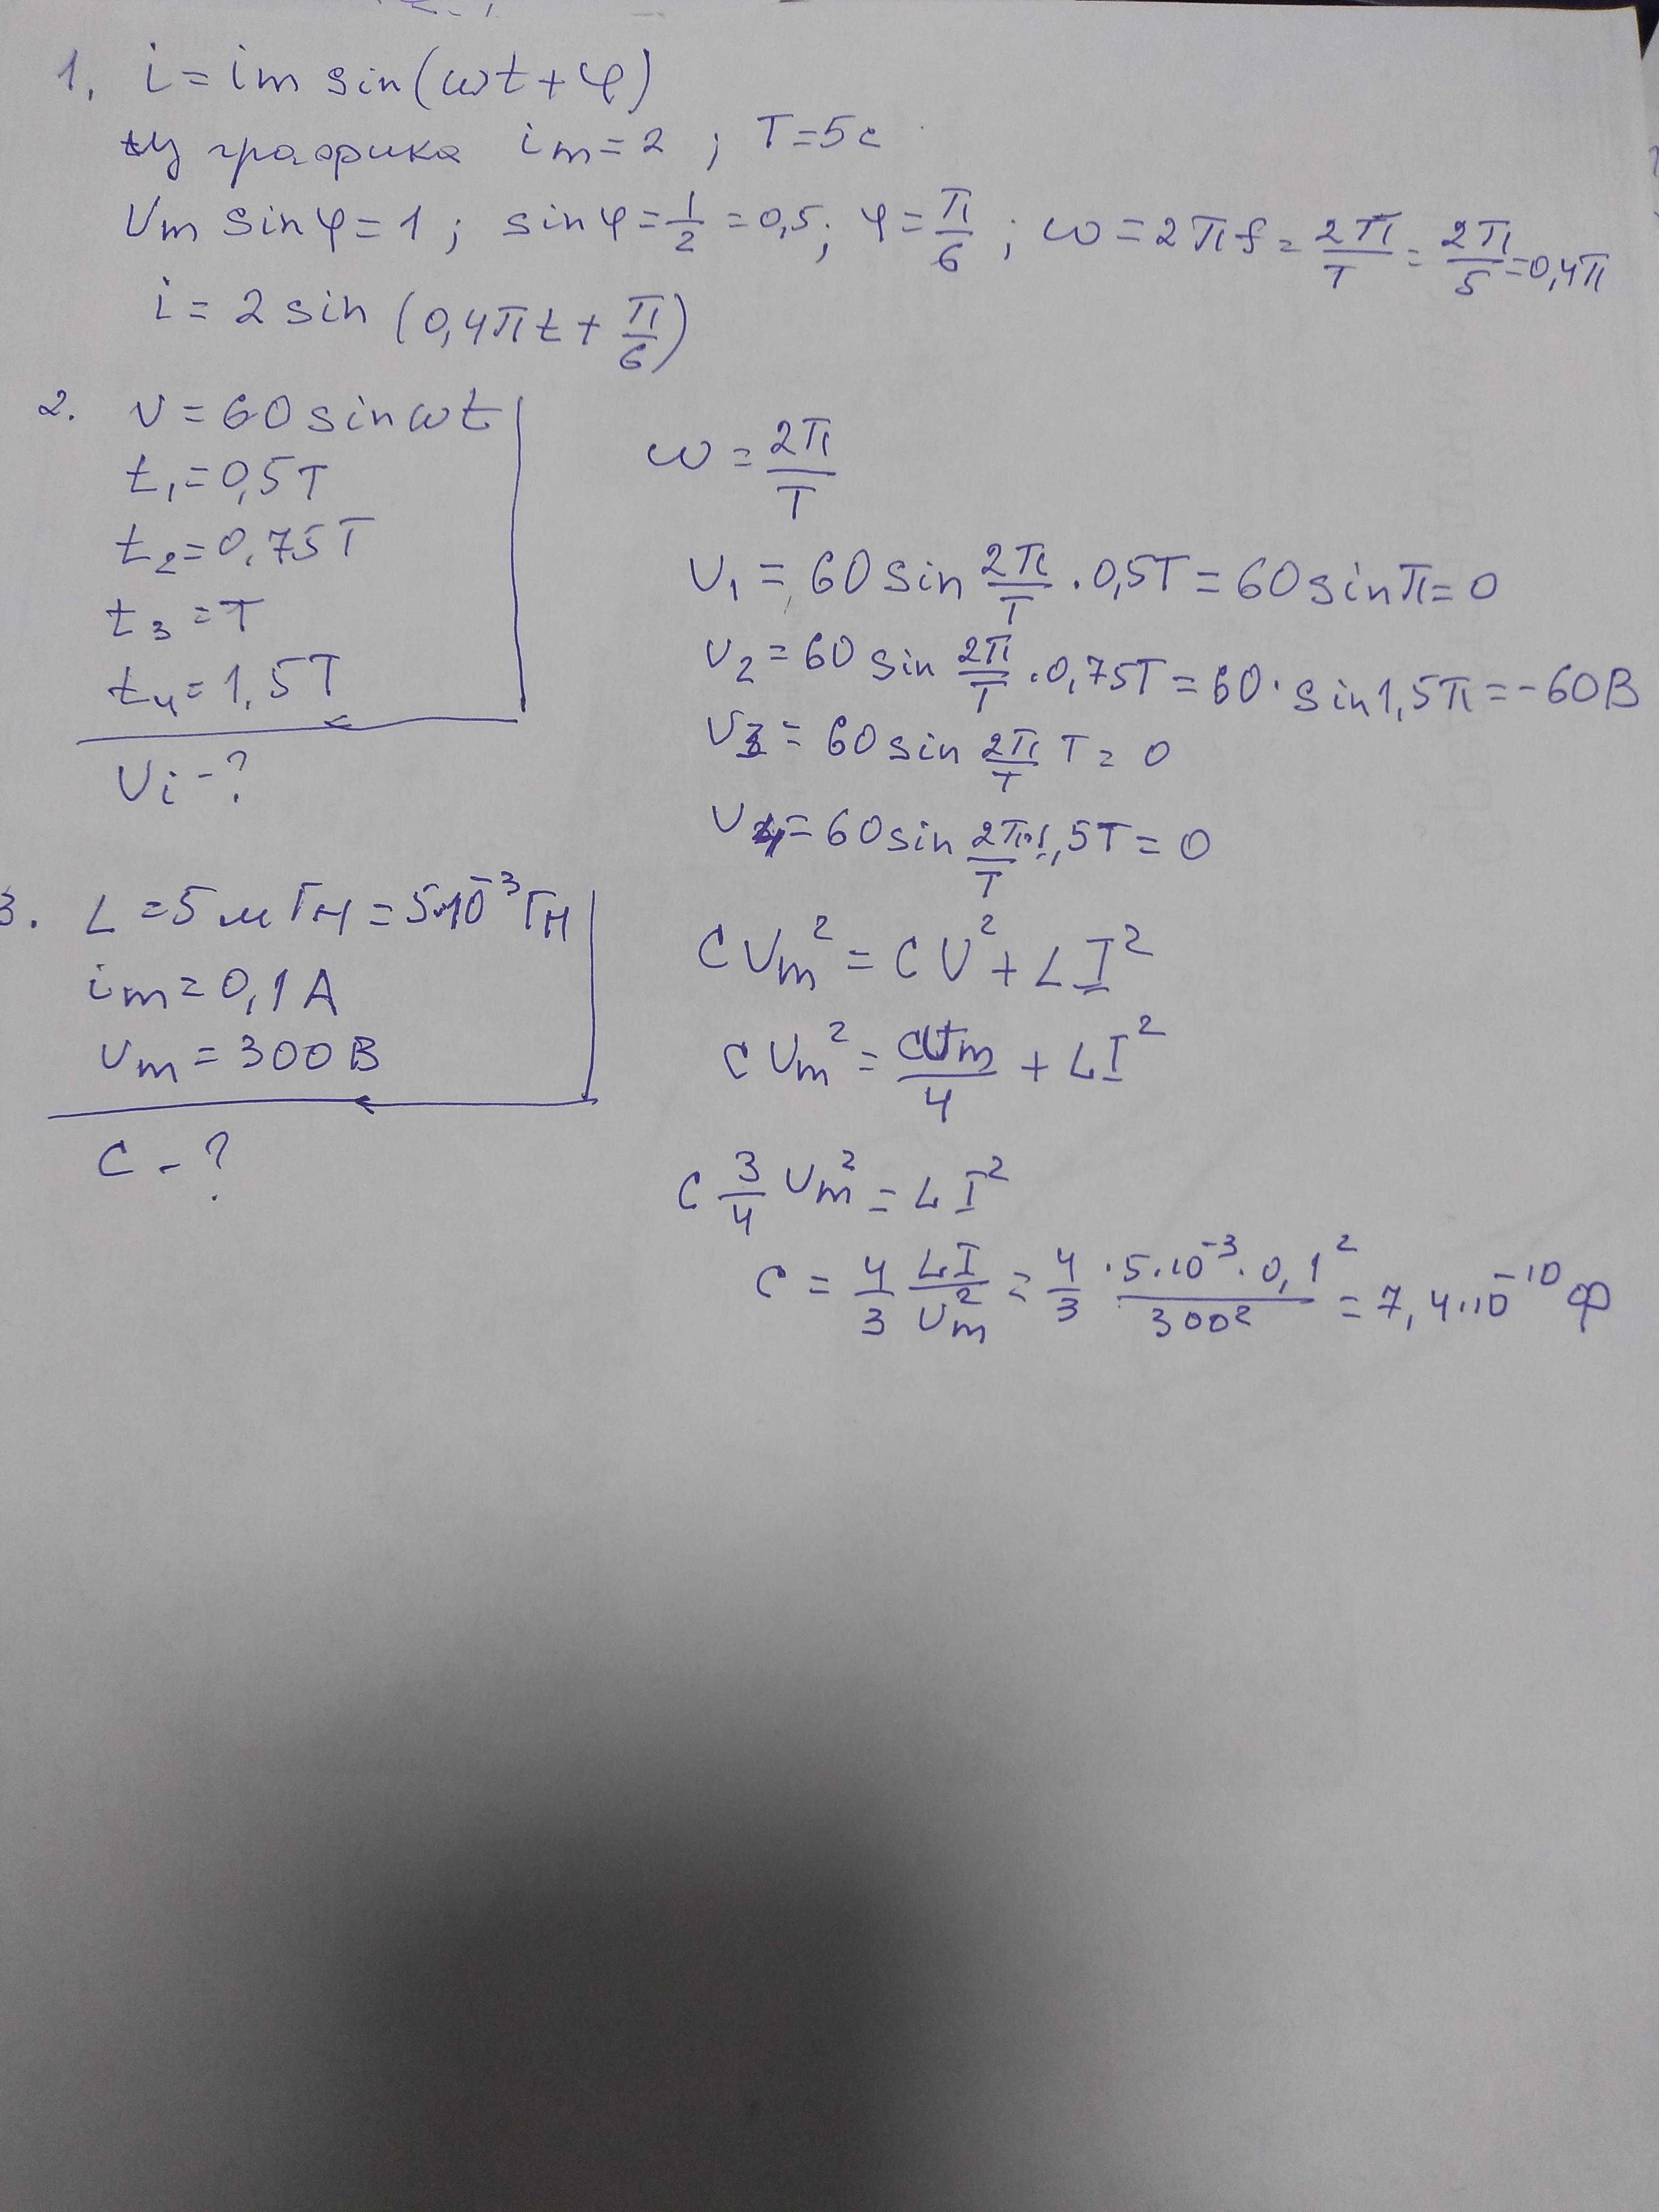 1. i = im sin(ωt + φ)
Из графика im = 2 ; T = 5с
Um sinφ = 1 ; sinφ = 1/2 = 0,5 ; φ = π/6 ; ω = 2πf = 2π/T = 2π/5 = 0,4π
i = 2 sin (0,4πt + π/6)
2. U = 60 sin ωt
t₁ = 0,5T
t₂ = 0,75T
t₃ = T
t₄ = 1,5T
Ui - ?
ω = 2π/T
U₁ = 60 sin 2π/T · 0,5T = 60 sin π = 0
U₂ = 60 sin 2π/T · 0,75T = 60 · sin 1,5π = -60В
U₃ = 60 sin 2π/T T = 0
U₄ = 60 sin 2π/T · 1,5T = 0
3. L = 5 мГн = 5·10⁻³ Гн
im = 0,1 А
Um = 300 В
C - ?
CUm² = CU² + LI²
CUm² = CUm/4 + LI²
C 3/4 Um² = LI²
C = 4/3 LI/Um² = 4/3 · 5·10⁻³ · 0,1²/300² = 7,4·10⁻¹⁰ Ф